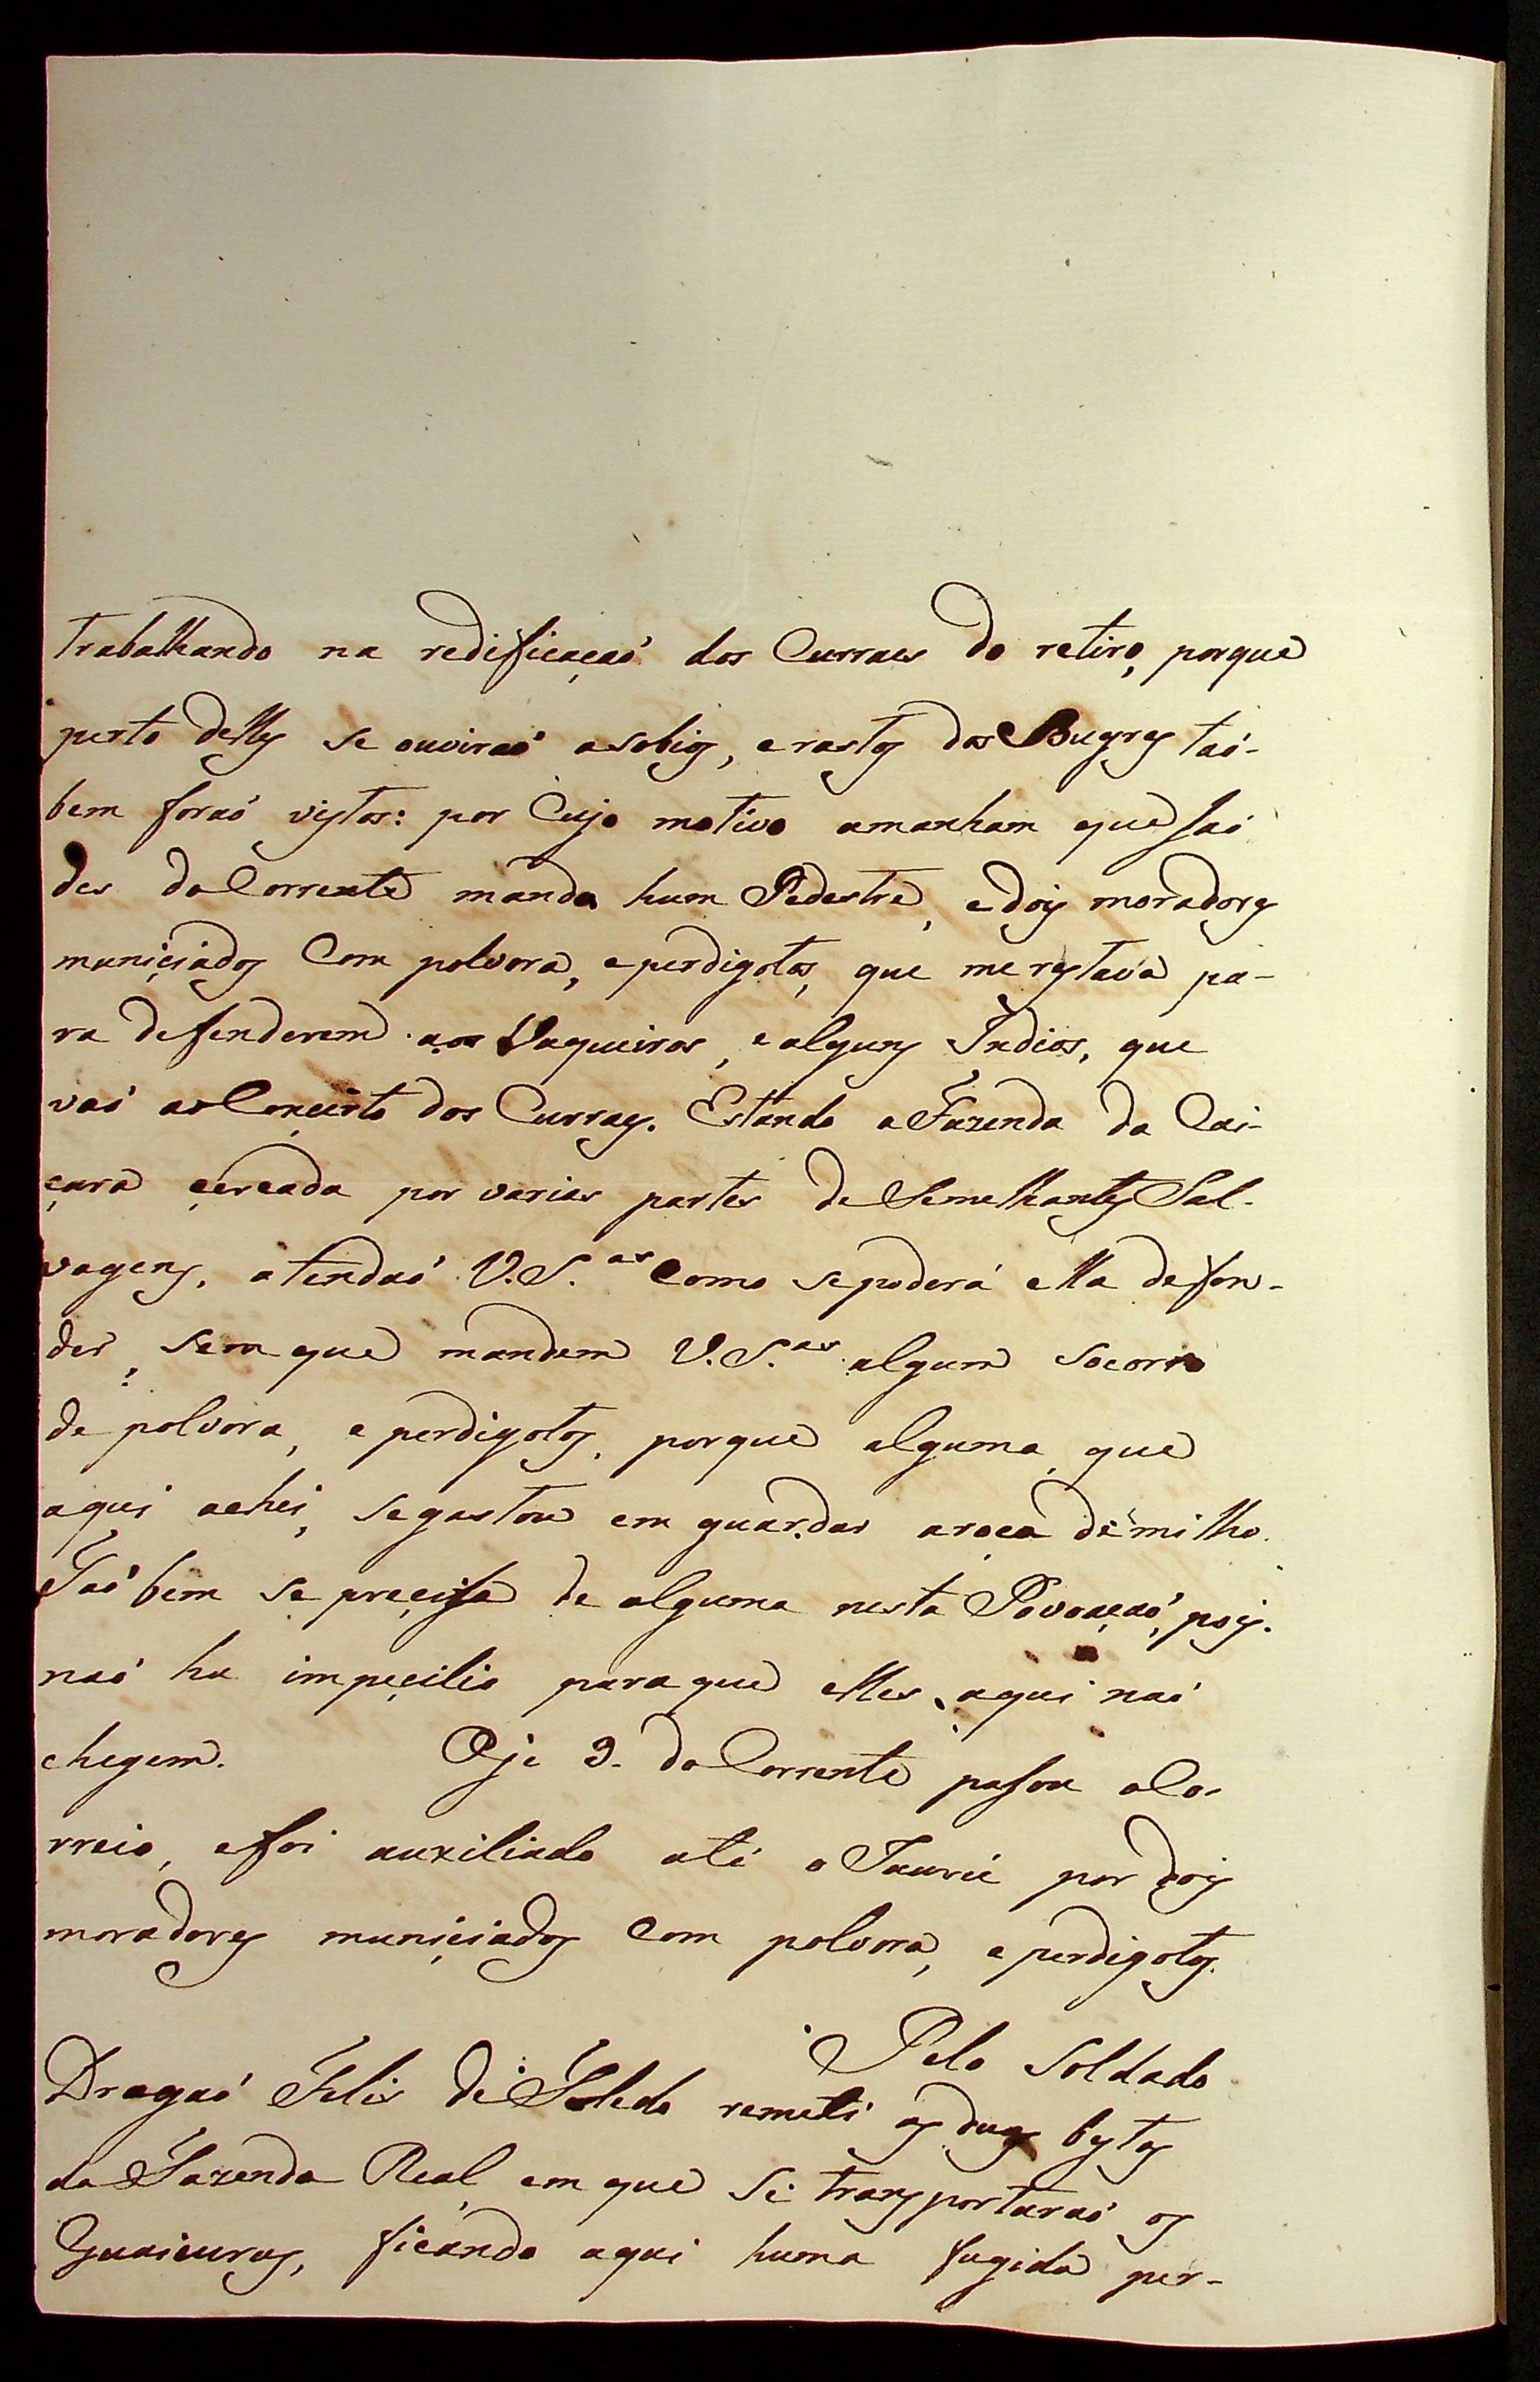 trabalhando na redificaçaõ dos Curraes do retiro, porque
perto delles se ouviraõ asobios, e rastos dos Bugres taõ-
bem foraõ vistos: por Cujo motivo amanham que saõ
des do Corrente manda hum Pedestre, e dois moradores
municiados Com polvora, e perdigotos, que me restava pa-
ra defenderem aos Vaqueiros, e alguns Indios, que
vaõ ao Concerto dos Curraes. Estando a Fazenda da Cai-
çara cercada por varias partes de Semelhantes Sal-
vagens, atendaõ V.S.as Como se poderá ella defen-
der, sem que mandem V.S.as algum socorro
de polvora, e perdigotos, porque alguma, que
aqui achei, se gastou em guardar a roça de milho.
Taõ bem se precisa de alguma nesta Povoaçaõ, pois
naõ ha impecilio para que elles aqui naõ
chegem. Oje 9. do Corrente pasou o Co-
rreio, e foi auxiliado até o Jaurú por dois
moradores municiados Com polvora, e perdigotos.
Pelo Soldado
Dragaõ Felis de Toledo remeti as duas bestas
da Fazenda Real em que se transportaraõ os
Guaicurus, ficando aqui huma fugida per-